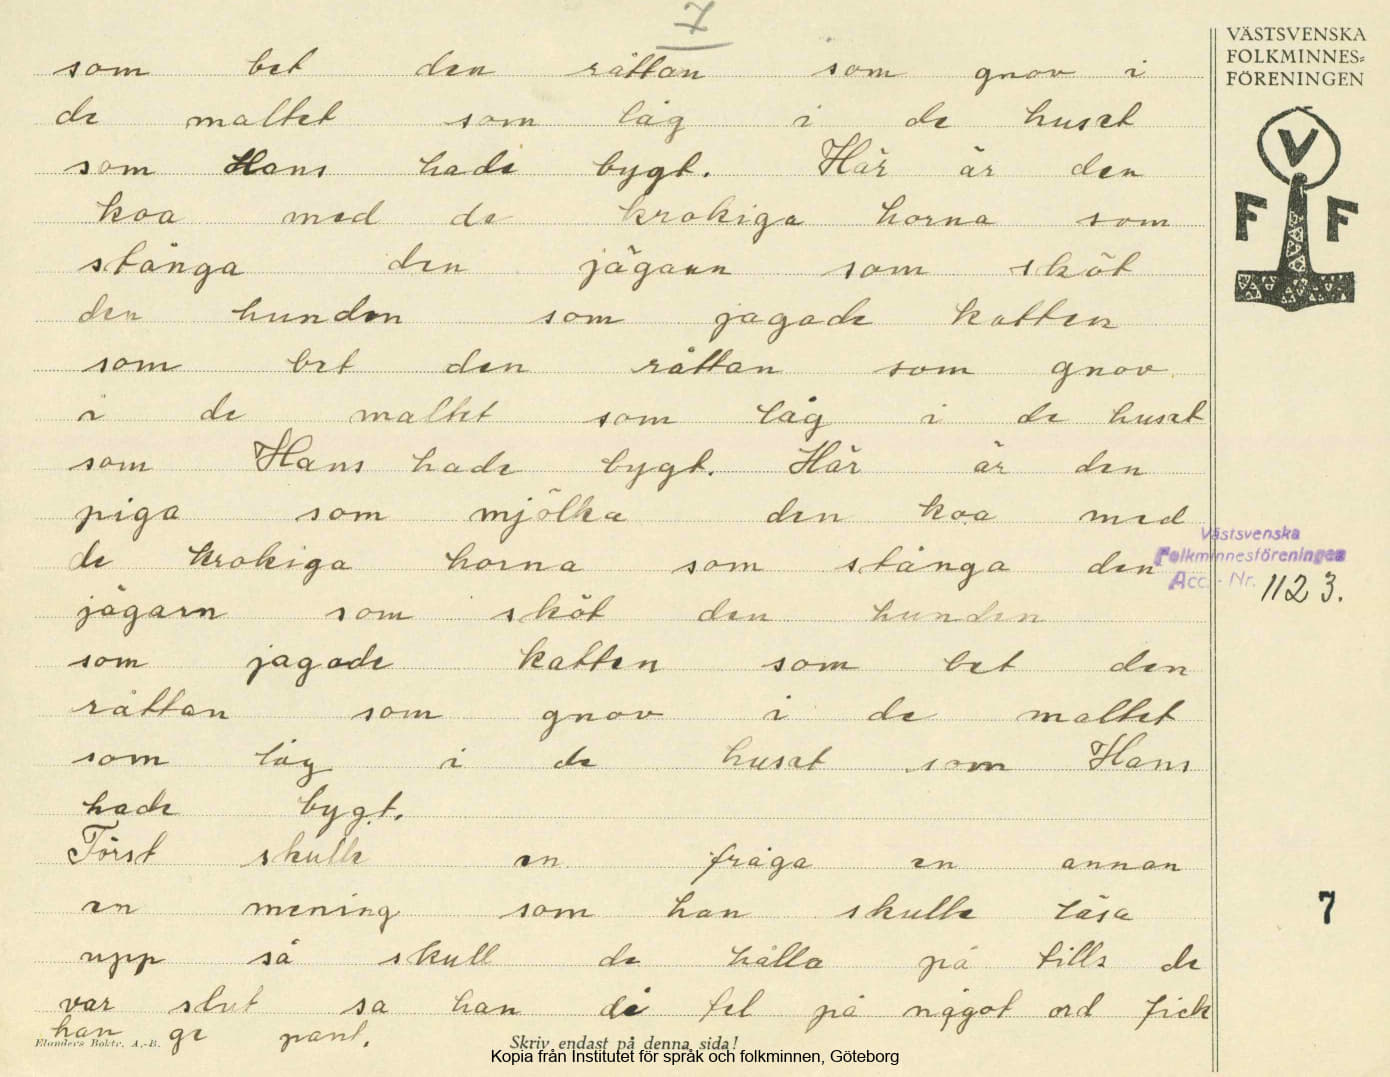 7
VÄSTSVENSKA
FOLKMINNES=
FÖRENINGEN
V
F F
som bet den råttan som gnov i
de maltet som låg i de huset
som Hans hade bygt. Här är den
koa med de krokiga horna som
stånga den jägarn som sköt
den hunden som jagade katten
som bet den råttan som gnov
i de maltet som låg i de huset
som Hans hade bygt. Här är den
piga som mjölka den koa med
de krokiga horna som stånga den
jägarn som sköt den hunden
som jagade katten som bet den
råttan som gnov i de maltet
som låg i de huset som Hans
hade bygt.
Först skulle en fråga en annan
en mening som han skulle läsa
upp så skull de hålla på tills de
var slut sa han de fel på något ord fick
han ge pant.
Västsvenska
Folkminnesföreningen
Acc. - Nr. 1123.
7
Elanders Boktr. A.-B.
Skriv endast på denna sida!
Kopia från Institutet för språk och folkminnen, Göteborg